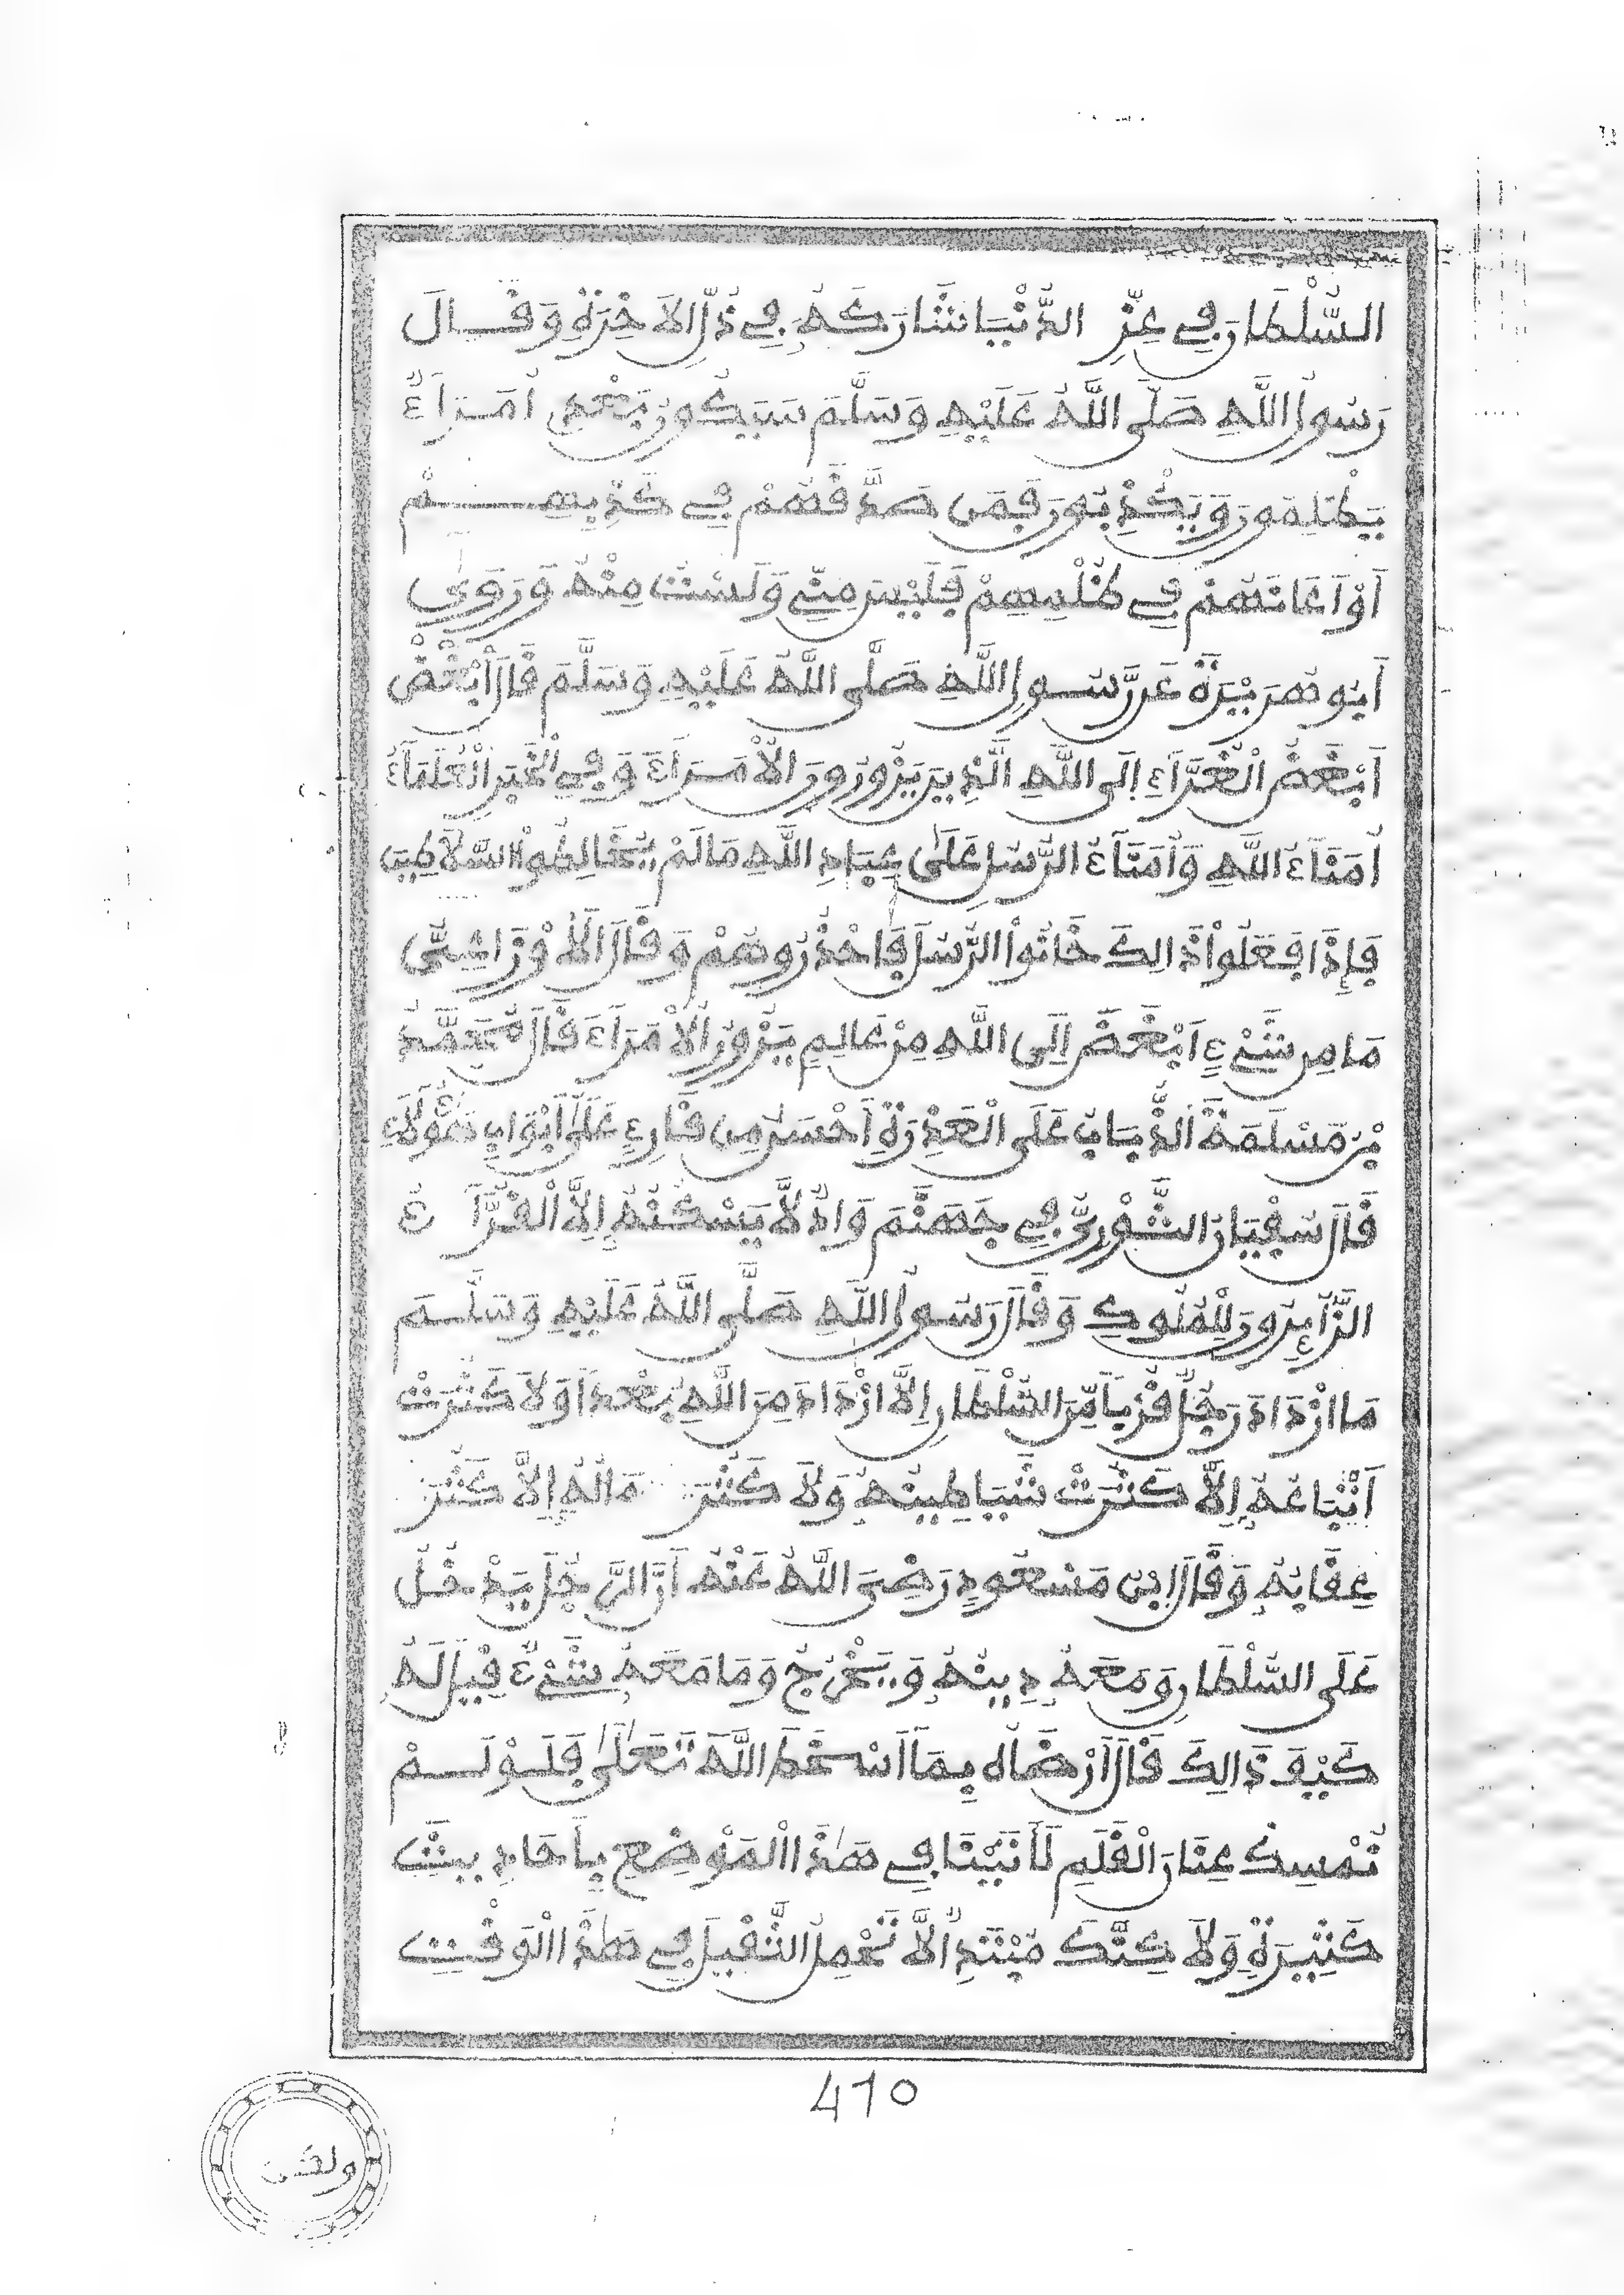 السُّلْطَانَ فِي عِزِّ الدُّنْيَا شَارَكَهُ فِي ذُلِّ الاَخِرَةِ وَقَالَ
رَسُولُ اللَّهِ صَلَّى اللَّهُ عَلَيْهِ وَسَلَّمَ سَيَكُونُ بَعْدِي أُمَرَآءُ
يَظْلِمُونَ وَيَكْذِبُونَ فَمَن صَدَّقَهُمْ فِي كَذِبِهِمْ
أَوْ أَعَانَهُمْ فِي ظُلْمِهِمْ فَلَيْسَ مِنِّي وَلَسْتُ مِنْهُ وَرَوَى
أَبُو هُرَيْرَةَ عَن رَّسُولِ اللَّهِ صَلَّى اللَّهُ عَلَيْهِ وَسَلَّمَ قَالَ أَبْغَضُ
أَبْغَضُ الْقُرَّآءِ إِلَى اللَّهِ الَّذِينَ يَزُورُونَ الْأُمَرَآءَ وَفِي الْخَبَرِ الْعُلَمَآءُ
أُمَنَآءُ اللَّهِ وَأُمَنَآءُ الرُّسُلِ عَلَى عِبَادِ اللَّهِ مَا لَمْ يُخَالِطُواْ السَّلَاطِينَ
فَإِذَا فَعَلُواْ ذَالِكَ خَانُواْ الرُّسُلَ فَاحْذَرُوهُمْ وَقَالَ الْأَوْزَاعِيُّ
مَا مِن شَيْءٍ أَبْغَضُ إِلَى اللَّهِ مِنْ عَالِمٍ يَزُورُ الْأُمَرَآءَ قَالَ مُحَمَّدُ
بْنُ مَسْلَمَةَ الذُّبَابُ عَلَى الْعَذِرَةِ أَحْسَنُ مِن قَارِءٍ عَلَى أَبْوَابِ هَؤُلَآءِ
قَالَ سُفْيَانُ الثَّوْرِيُّ فِي جَهَنَّمَ وَادٍ لَّا يَسْكُنُهُ إِلَّا الْقُرَّآءُ
الزَّآئِرُونَ لِلْمُلُوكِ وَقَالَ رَسُولُ اللَّهِ صَلَّى اللَّهُ عَلَيْهِ وَسَلَّمَ
مَا ازْدَادَ رَجُلٌ قُرْباً مِّنَ السُّلْطَانِ إِلَّا ازْدَادَ مِنَ اللَّهِ بُعْداً وَلَا كَثُرَتْ
أَتْبَاعُهُ إِلَّا كَثُرَتْ شَيَاطِينُهُ وَلَا كَثُرَ مَالُهُ إِلَّا كَثُرَ
عِقَابُهُ وَقَالَ ابْنُ مَسْعُودٍ رَضِيَ اللَّهُ عَنْهُ أَنَّ الرَّجُلَ يَدْخُلُ
عَلَى السُّلْطَانِ وَمَعَهُ دِينُهُ وَيَخْرُجُ وَمَا مَعَهُ شَيْءٌ قِيلَ لَهُ
كَيْفَ ذَالِكَ قَالَ أَرْضَاهُ بِمَا أَسْخَطَ اللَّهَ تَعَالَى فَلَوْ لَمْ
نُمْسِكْ عِنَانَ الْقَلَمِ لَأَتَيْنَا فِي هَذَا الْمَوْضِعِ بِأَحَادِيثَ
كَثِيرَةٍ وَلَاكِنَّكَ مُبْتَدٍ لَّا تَحْمِلُ الثَّقِيلَ فِي هَذَا الْوَقْتِ
410